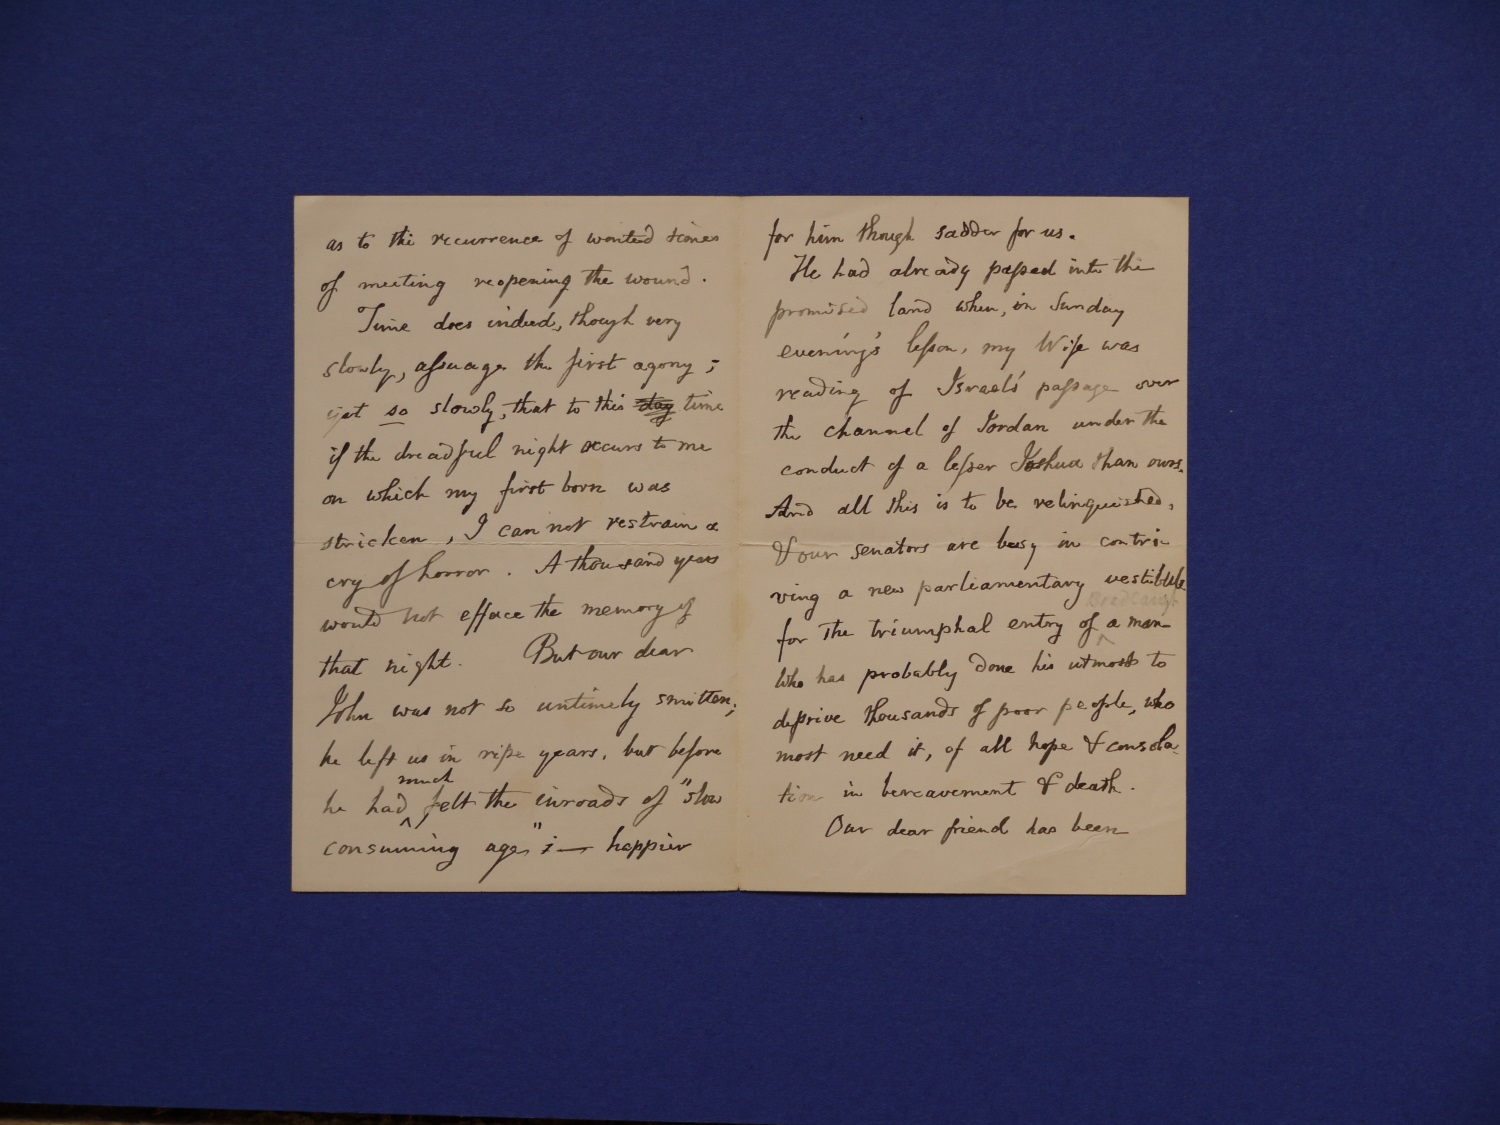 as to the recurrence of wonted times
of meeting reopening the wound.
Time does indeed, though very
slowly, assuage the first agony;
yet so slowly, that to this day time
if the dreadful night occurs to me
on which my first born was
stricken, I can not restrain a
cry of horror. A thousand years
would not efface the memory of
that night. But our dear
John was not so untimely smitten;
he left us in ripe years, but before
he had much felt the inroads of "slow
consuming age"; — happier
for him though sadder for us.
He had already passed into the
promised land when, in Sunday
evening's lesson, my Wife was
reading of Israel's passage over
the channel of Jordan under the
conduct of a lesser Joshua than ours.
And all this is to be relinquished,
& our senators are busy in contri-
ving a new parliamentary vestibule
for the triumphal entry of Bradlaugh a man
who has probably done his utmost to
deprive thousands of poor people, who
most need it, of all hope & consola-
tion in bereavement & death.
Our dear friend has been